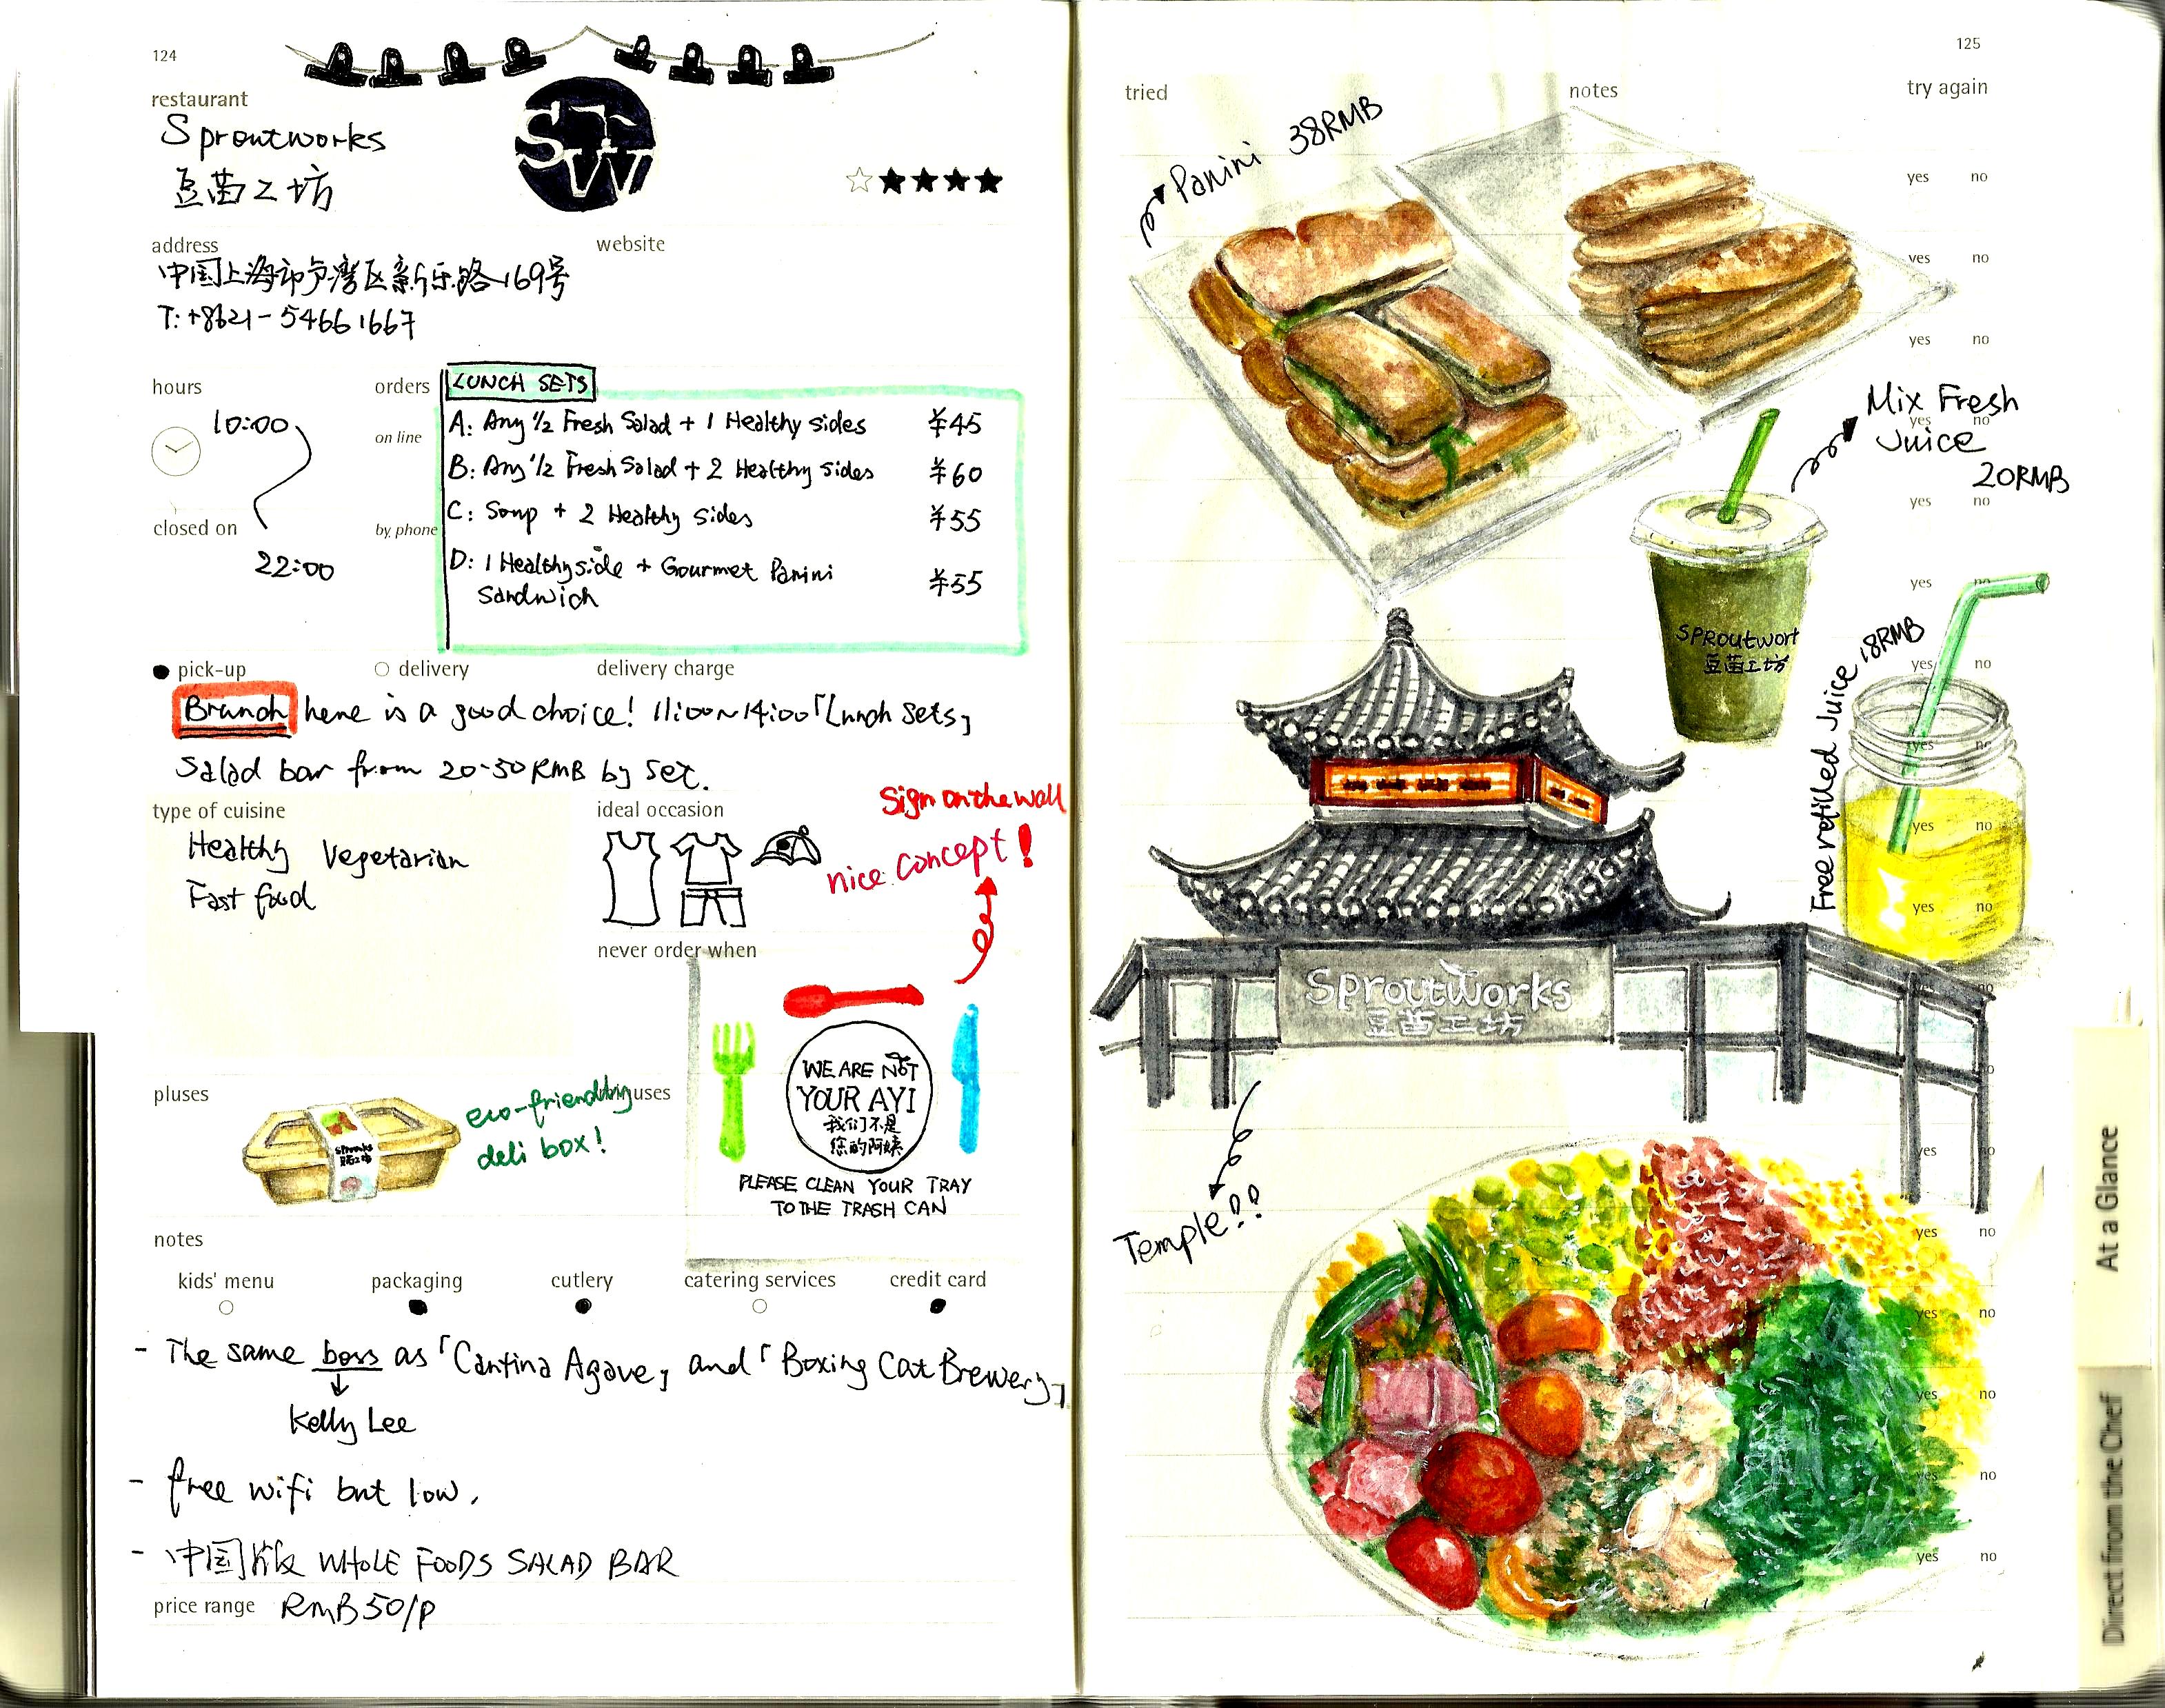 124
restaurant
Sproutworks
豆苗工坊
STW
address
website
中国上海市卢湾区新乐路169号
T: +8621-54661667
hours
orders
LUNCH SETS
10:00
on line
A: Any 1/2 Fresh Salad + 1 Healthy sides ¥45
B: Any 1/2 Fresh Salad + 2 Healthy sides ¥60
C: Soup + 2 Healthy sides ¥55
closed on
by phone
D: 1 Healthy side + Gourmet Panini ¥55
Sandwich
22:00
pick-up
delivery
delivery charge
Brunch here is a good choice! 11:00~14:00「Lunch Sets」
Salad bar from 20-50 RMB by set.
type of cuisine
ideal occasion
Healthy Vegetarian
Fast food
Sign on the wall
nice concept!
never order when
WE ARE NOT
YOUR AYI
我们不是
您的阿姨
PLEASE CLEAN YOUR TRAY
TO THE TRASH CAN
pluses
minuses
eco-friendly
deli box!
notes
kids' menu
packaging
cutlery
catering services
credit card
- The same boss as「Cantina Agave」and「Boxing Cat Brewery」
Kelly Lee
- free wifi but low.
- 中国版 WHOLE FOODS SALAD BAR
price range RMB50/P
125
tried
notes
try again
Panini 38RMB
yes no
yes no
yes no
Mix Fresh
yes no
Juice
20RMB
yes no
yes no
SPROUTWORT
豆苗工坊
Free refilled Juice 18RMB
yes no
yes no
yes no
yes no
no
Sproutworks
豆苗工坊
yes no
Temple!!
yes no
yes no
yes no
yes no
yes no
At a Glance
Direct from the Chef